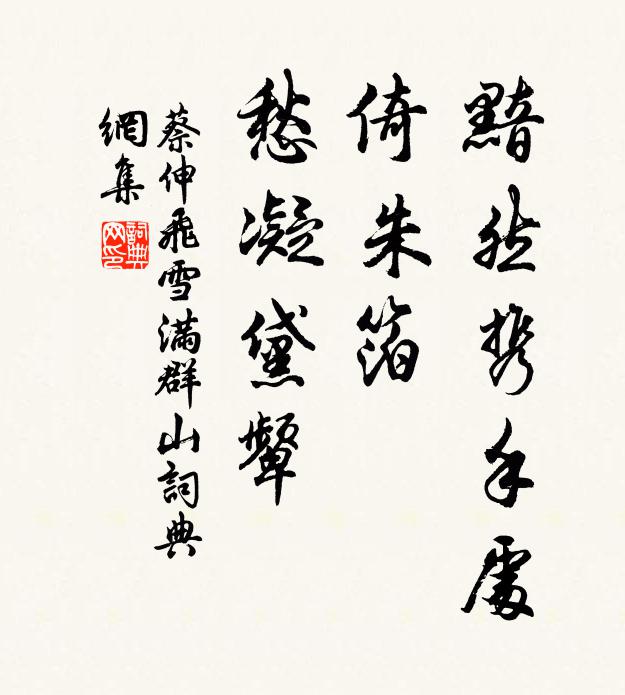 黯然携手處
倚朱箔
愁凝黛顰
蔡伸飛雪滿群山詞典
網集
詞典
网印